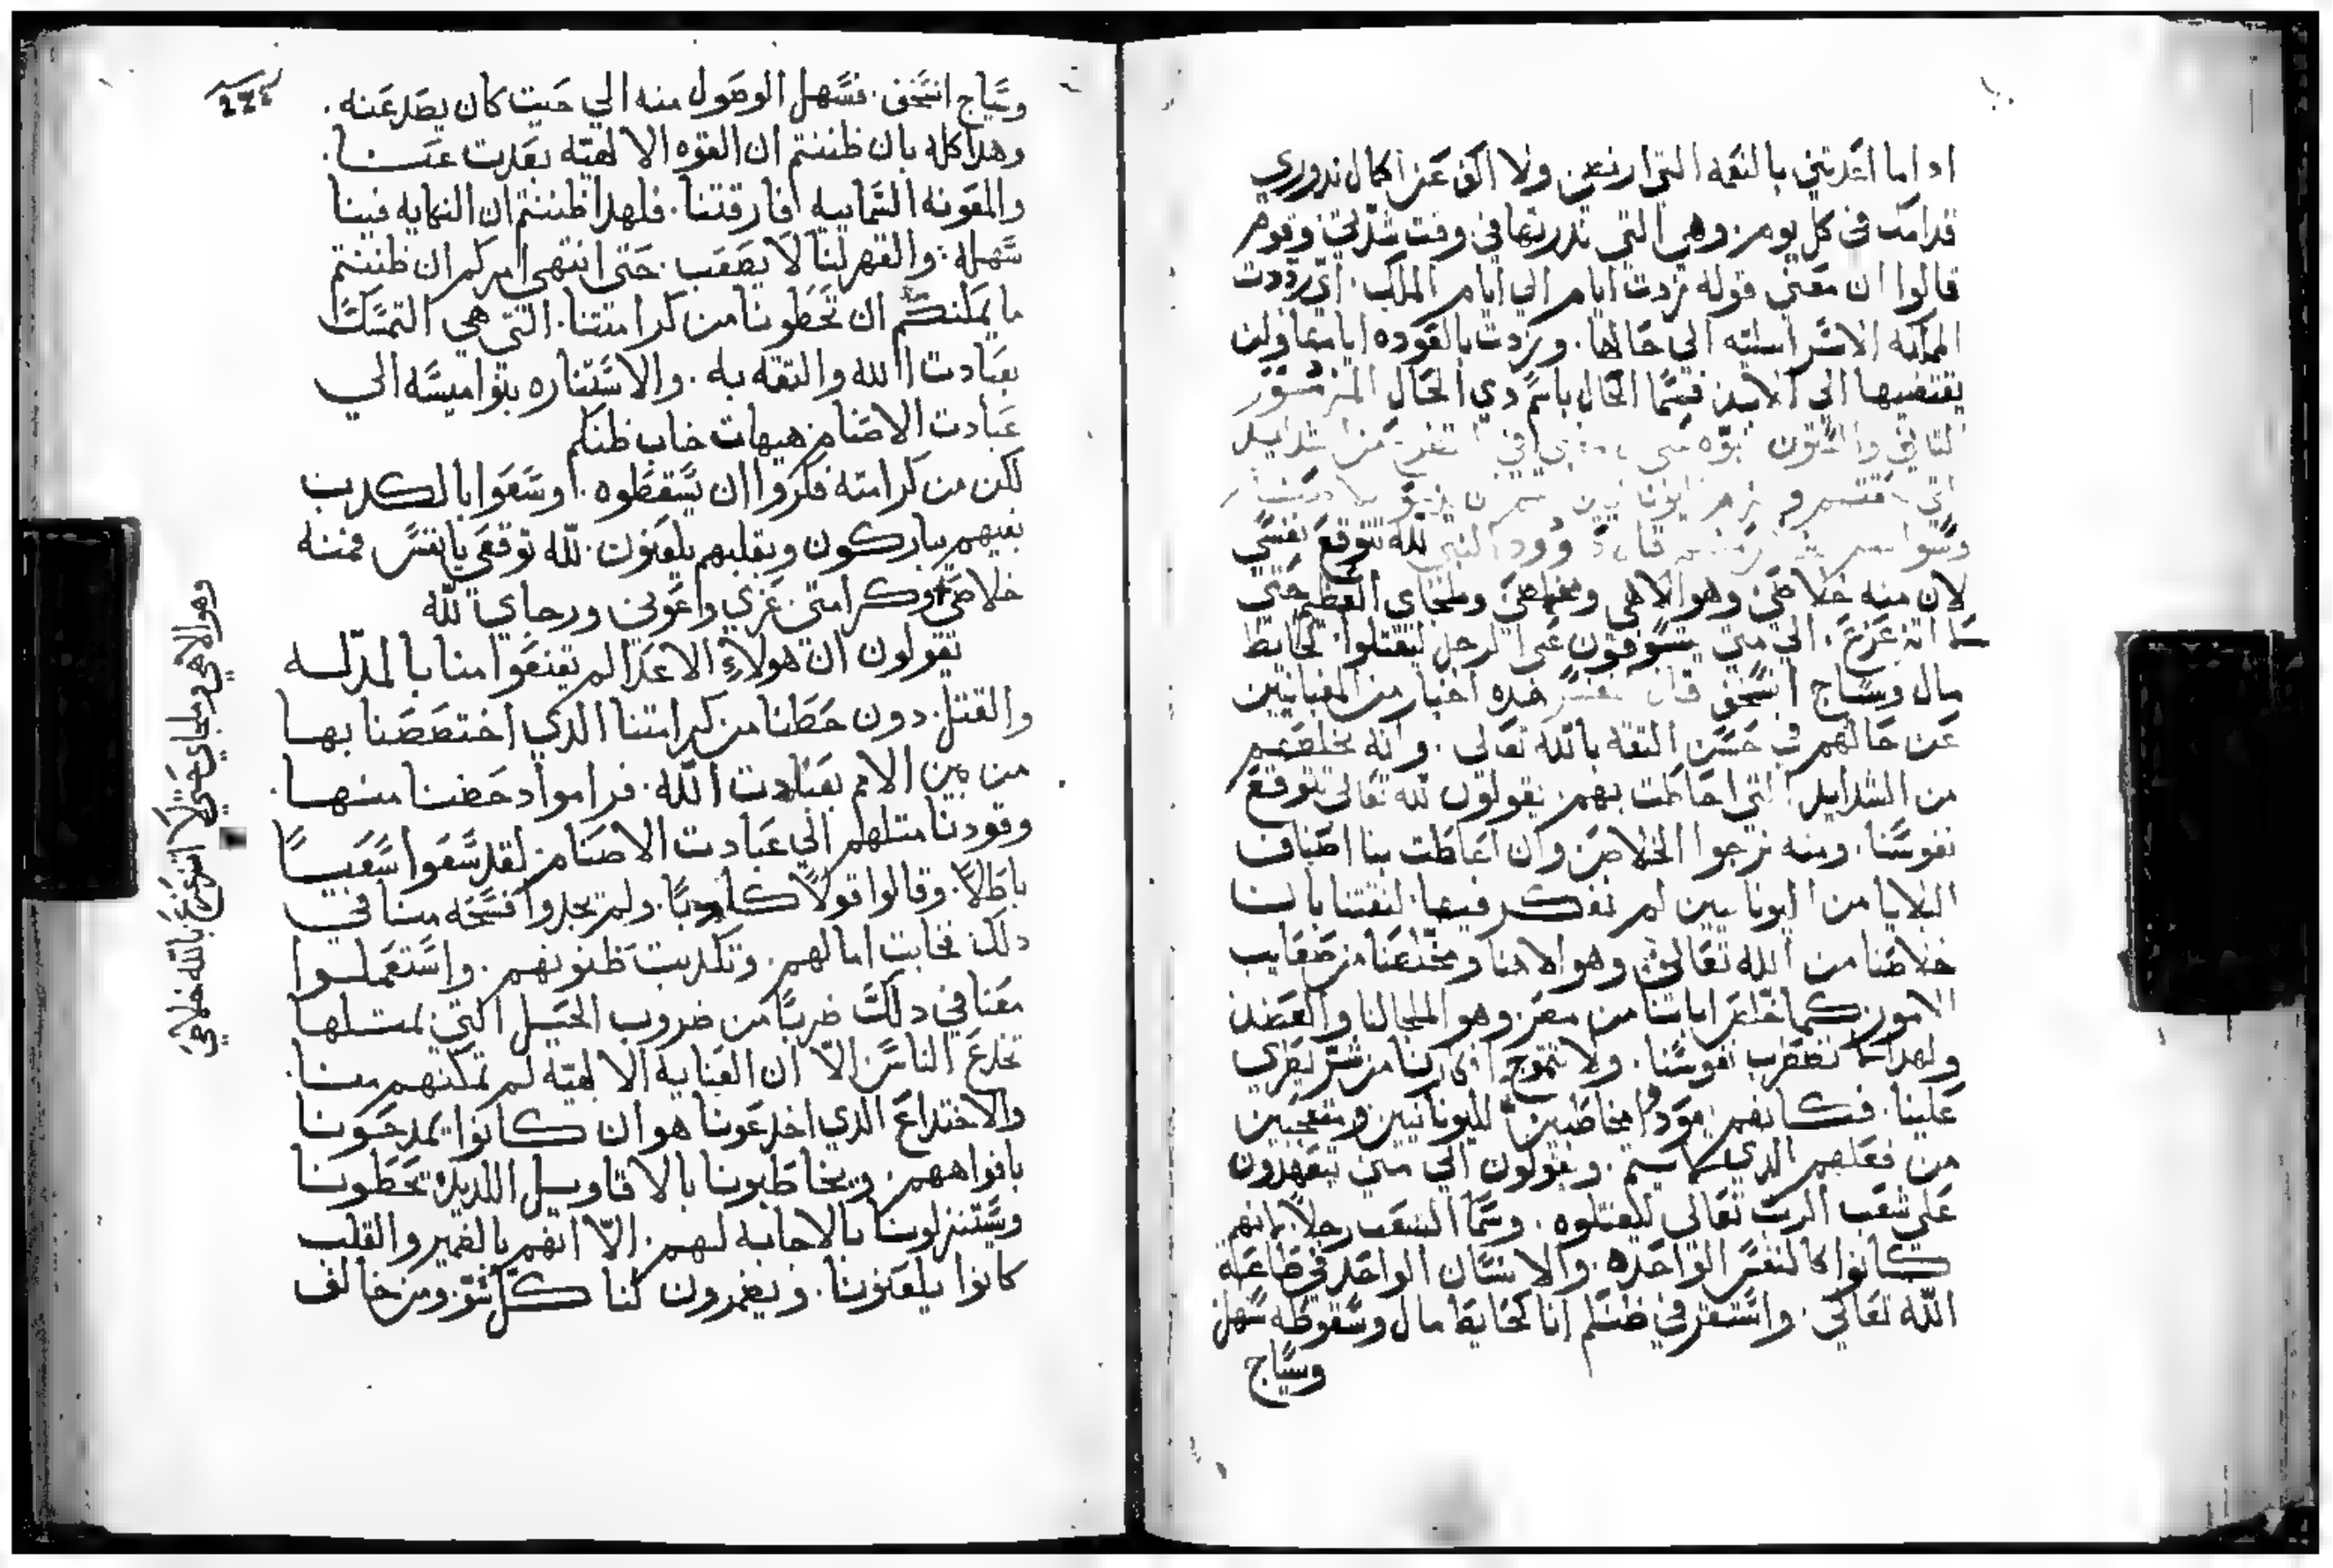 اد اما اعدتني بالنعمه التي ارنعن ولا اكف عن اكمال ندوري
قدامك في كل يوم. وهي التي ندرتها في وقت شدتي وقوم
قالوا ان معني قوله زدت ايام الي ايام الملك. اي رددت
المملكه الاسراييليه الي حالها. وزدت بالعوده اياما ولن
يقتضيها الي الابد فسما الحال باسم دي الحال المزمور
التاني والستون
وسوا قال داوود النبي لله تتوقع نفسي
لان منه خلاصي وهو الاهي ومخلصي وملجاي العظيم حتي
لا اتزعزع. الي متي تسوقون علي الرجل ليقتلوا كحايط
مال وسياج انسحق قال المفسر هده اخبار من المقبانيين
عن حالهم في حسن التقه بالله تعالي. وانه يخلصهم
من الشدايد التي احاطت بهم. يقولون لله تعالي تتوقع
نفوسنا. ومنه نرجوا الخلاص. وان احاطت بنا اصناف
البلايا من اليونانيين لم نفكر فيها. لتقتنا بان
خلاصنا من الله تعالي. وهو الاهنا ومخلصنا من صعايب
الامور. كما خلص اباينا من مصر. وهو الملجا لنا والعضد
ولهدا لا تضطرب نفوسنا. ولا تتموج افكارنا من شر يطري
علينا. فكانهم يودوا مخاطبين لليونانيين ومتعجبين
من فعلهم الدي لا يتم. ويقولون الي متي تتمردون
علي شعب الرب تعالي لتقتلوه. وسما الشعب رجلا لانهم
كانوا كالنفس الواحده. والانسان الواحد في طاعة
الله تعالي. واستقر في ظنكم انا كحايط مال وسقوطه سهل
وسياج
وسياج انسحق. فسهل الوصول منه الي حيت كان يصد عنه.
وهدا كله بان ظننتم ان القوه الالاهيه بعدت عنا.
والمعونه السماييه فارقتنا. فلهدا ظننتم ان النكايه فينا
سهله. والقهر لنا لا يصعب. حتي انتهي امركم ان ظننتم
ما يمكنكم ان تحطونا من كرامتنا. التي هي التمسك
بعبادت الله والتقه به. والاستناره بنواميسه الي
عبادت الاصنام هيهات خاب ظنكم
لكن من كرامته فكروا ان يسقطوه. وسعوا بالكدب
بفيهم يباركون وبقلبهم يلعنون. لله توقعي يا نفس فمنه
خلاصي وكرامتي. عزي واعوني ورجاي لله
يقولون ان هولاء الاعدا لم يقنعوا منا بالمدله
والقتل. دون حطنا من كرامتنا الدي اختصصنا بها
من بين الامم بعبادت الله. فراموا دحضنا منها.
وقودنا متلهم الي عبادت الاصنام. لقد سعوا سعيا
باطلا. وقالوا قولا كادبا. ولم يجدوا فسحه منا في
دلك فخابت امالهم. وتكدبت ظنونهم. واستعملوا
معنا في دلك ضربا من ضروب الحيل التي بمتلها
تخدع الناس. الا ان العنايه الالاهيه لم تمكنهم منا.
والاختداع الدي اخدعونا هو ان كانوا يمدحونا
بافواههم. ويخاطبونا بالاقاويل اللديده تحطونا
ويستنزلونا بالاجابه لهم. الا انهم بالضمير والقلب
كانوا يلعنونا. ويضمرون لنا كل سو. ومن خالف
وهو الاهي وملجاي حتي لا اتزعزع بالله خلاصي